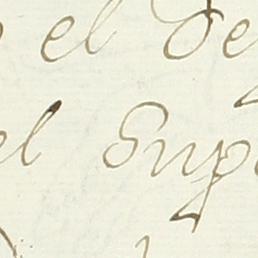 el Se
el Sup